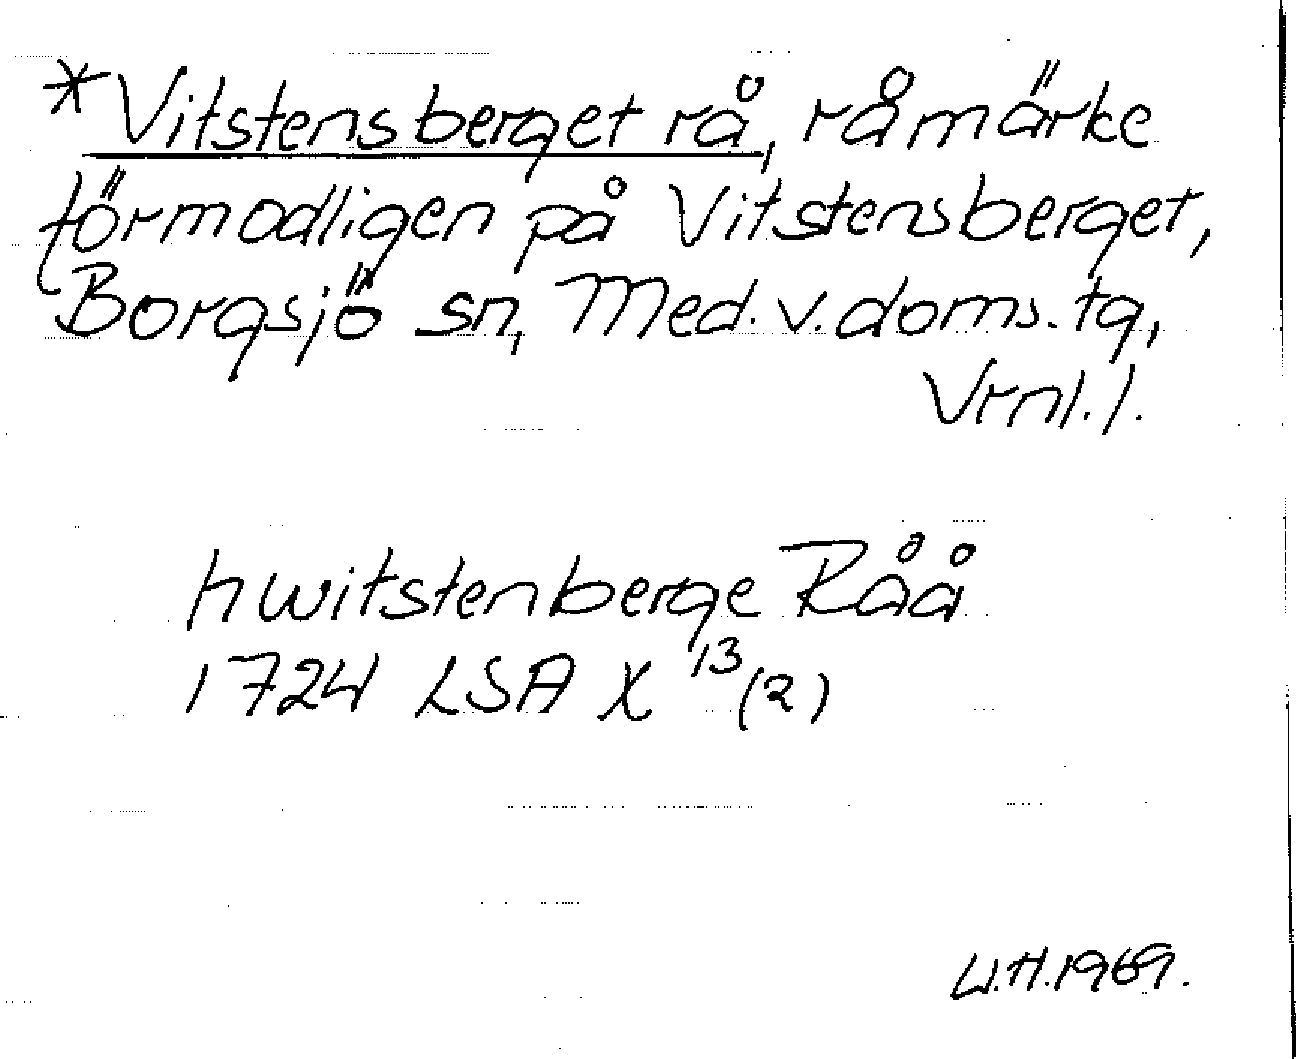 *Vitstensberget rå, råmärke
förmodligen på Vitstensberget,
Borgsjö sn, Med. v. doms. tg,
Vrnl. l.
hwitstenberge Råå
1724 LSA X 13 (2)
U.H. 1969.